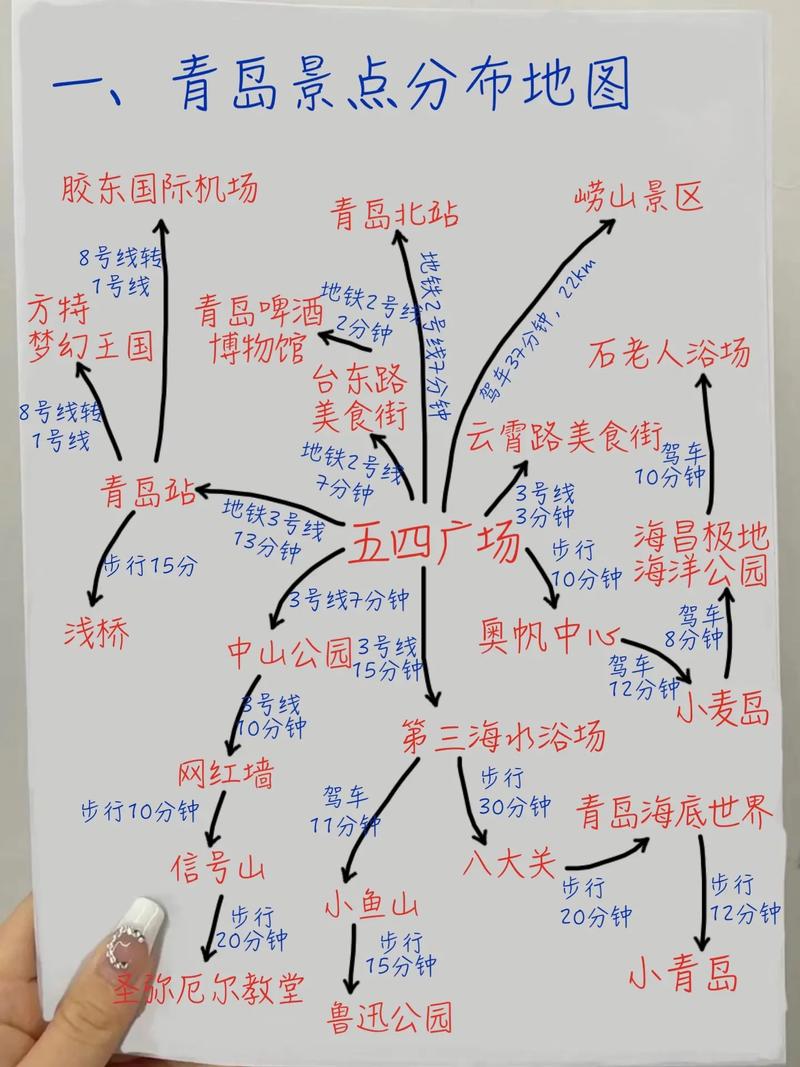 一、青岛景点分布地图
胶东国际机场
青岛北站
崂山景区
8号线转
1号线
地铁2号线7分钟
驾车37分钟，22km
方特
梦幻王国
青岛啤酒
博物馆
地铁2号线
2分钟
石老人浴场
台东路
美食街
8号线转
1号线
云霄路美食街
地铁2号线
7分钟
驾车
10分钟
青岛站
地铁3号线
13分钟
3号线
3分钟
五四广场
海昌极地
海洋公园
步行15分
步行
10分钟
浅桥
3号线7分钟
中山公园
3号线
15分钟
奥帆中心
驾车
8分钟
驾车
12分钟
小麦岛
3号线
10分钟
第三海水浴场
网红墙
驾车
11分钟
步行
30分钟
步行10分钟
青岛海底世界
信号山
小鱼山
八大关
步行
20分钟
步行
12分钟
步行
20分钟
步行
15分钟
圣弥厄尔教堂
鲁迅公园
小青岛